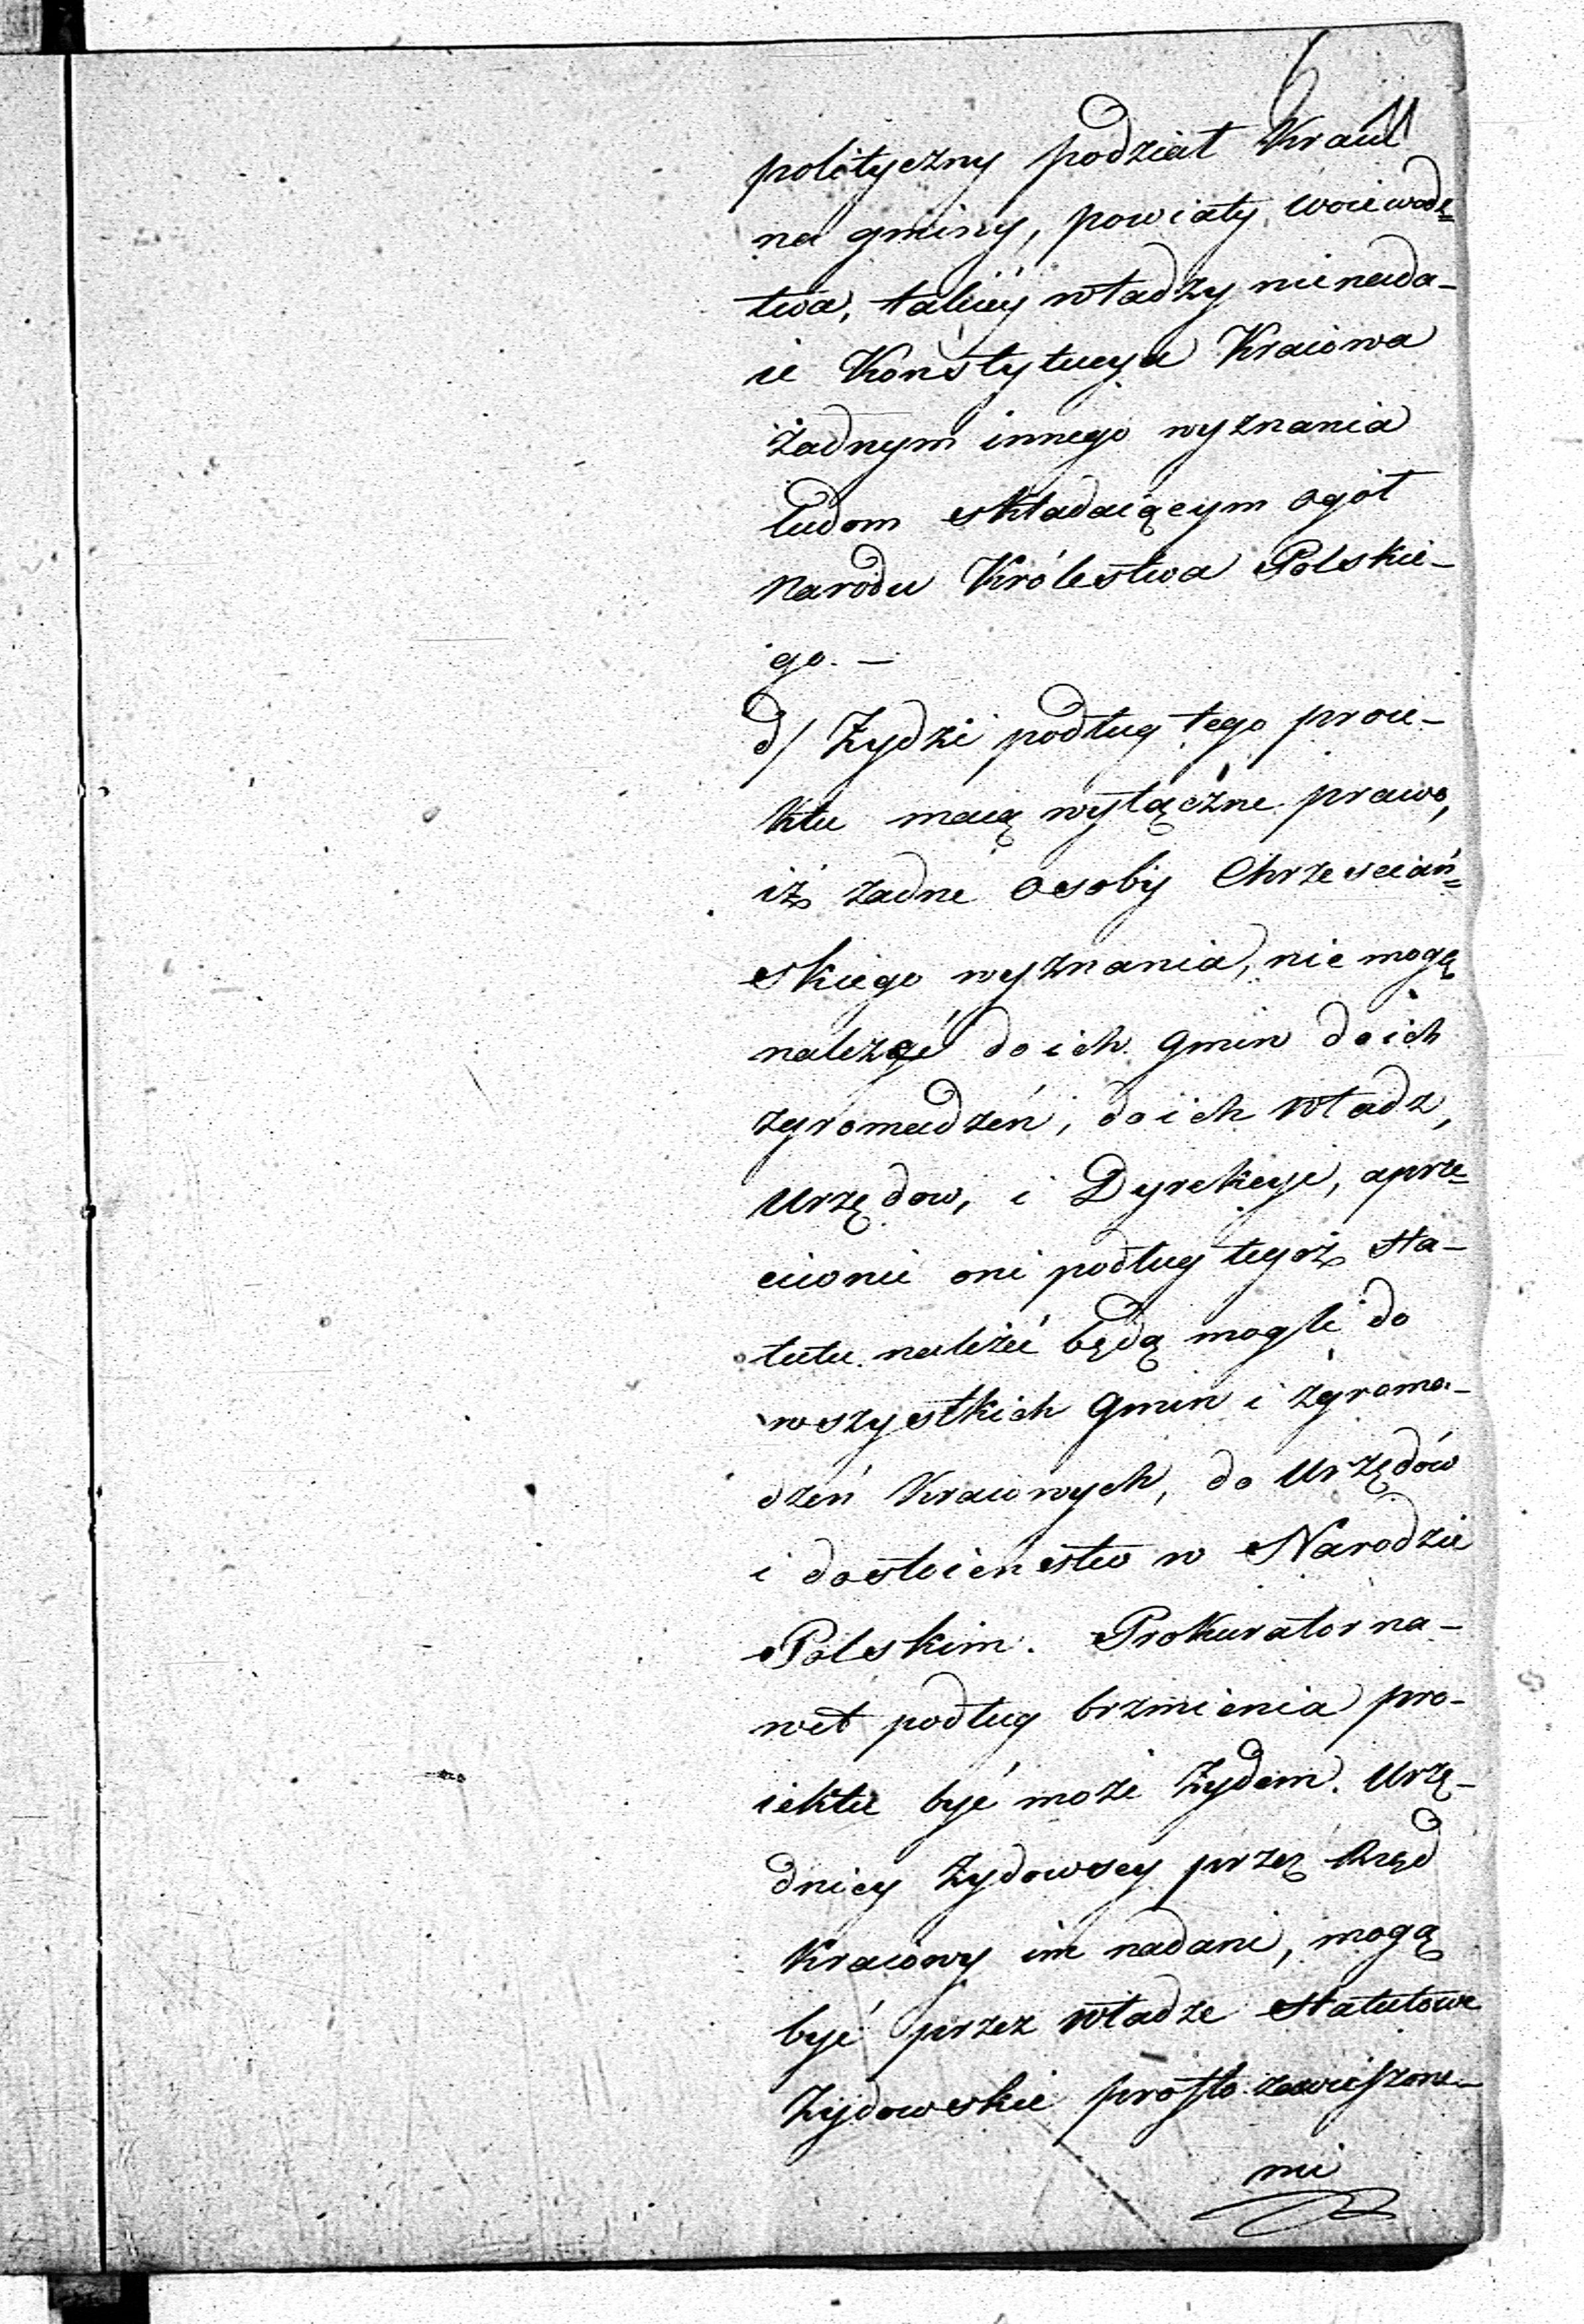 6
polityczny podział Kraiu
na gminy, powiaty, woiewodz=
twa, takiéy władzy nienada-
ie Konstytucya Kraiowa
żadnym innego wyznania
ludom składaiącym ogół
Narodu Królestwa Polskie-
go. —
d/ Żydzi podług tego proie-
ktu maią wyłączne prawo,
iż żadne osoby Chrześciań=
skiego wyznania, nie mogą
należeć do ich gmin do ich
zgromadzeń, do ich władz,
Urzędow, i Dyrekcye, a prze=
ciwnie oni podług tegoż sta-
tutu należeć będą mogli do
wszystkich Gmin i zgroma-
dzeń Kraiowych, do Urzędów
i dostoieństw w Narodzie
Polskim. Prokurator na-
wet podług brzmienia pro-
iektu być może Żydem. Urzę-
dnicy Żydowscy przez Rząd
Kraiowy im nadani, mogą
być przez władze statutowe
Żydowskie prosto zawieszone-
mi